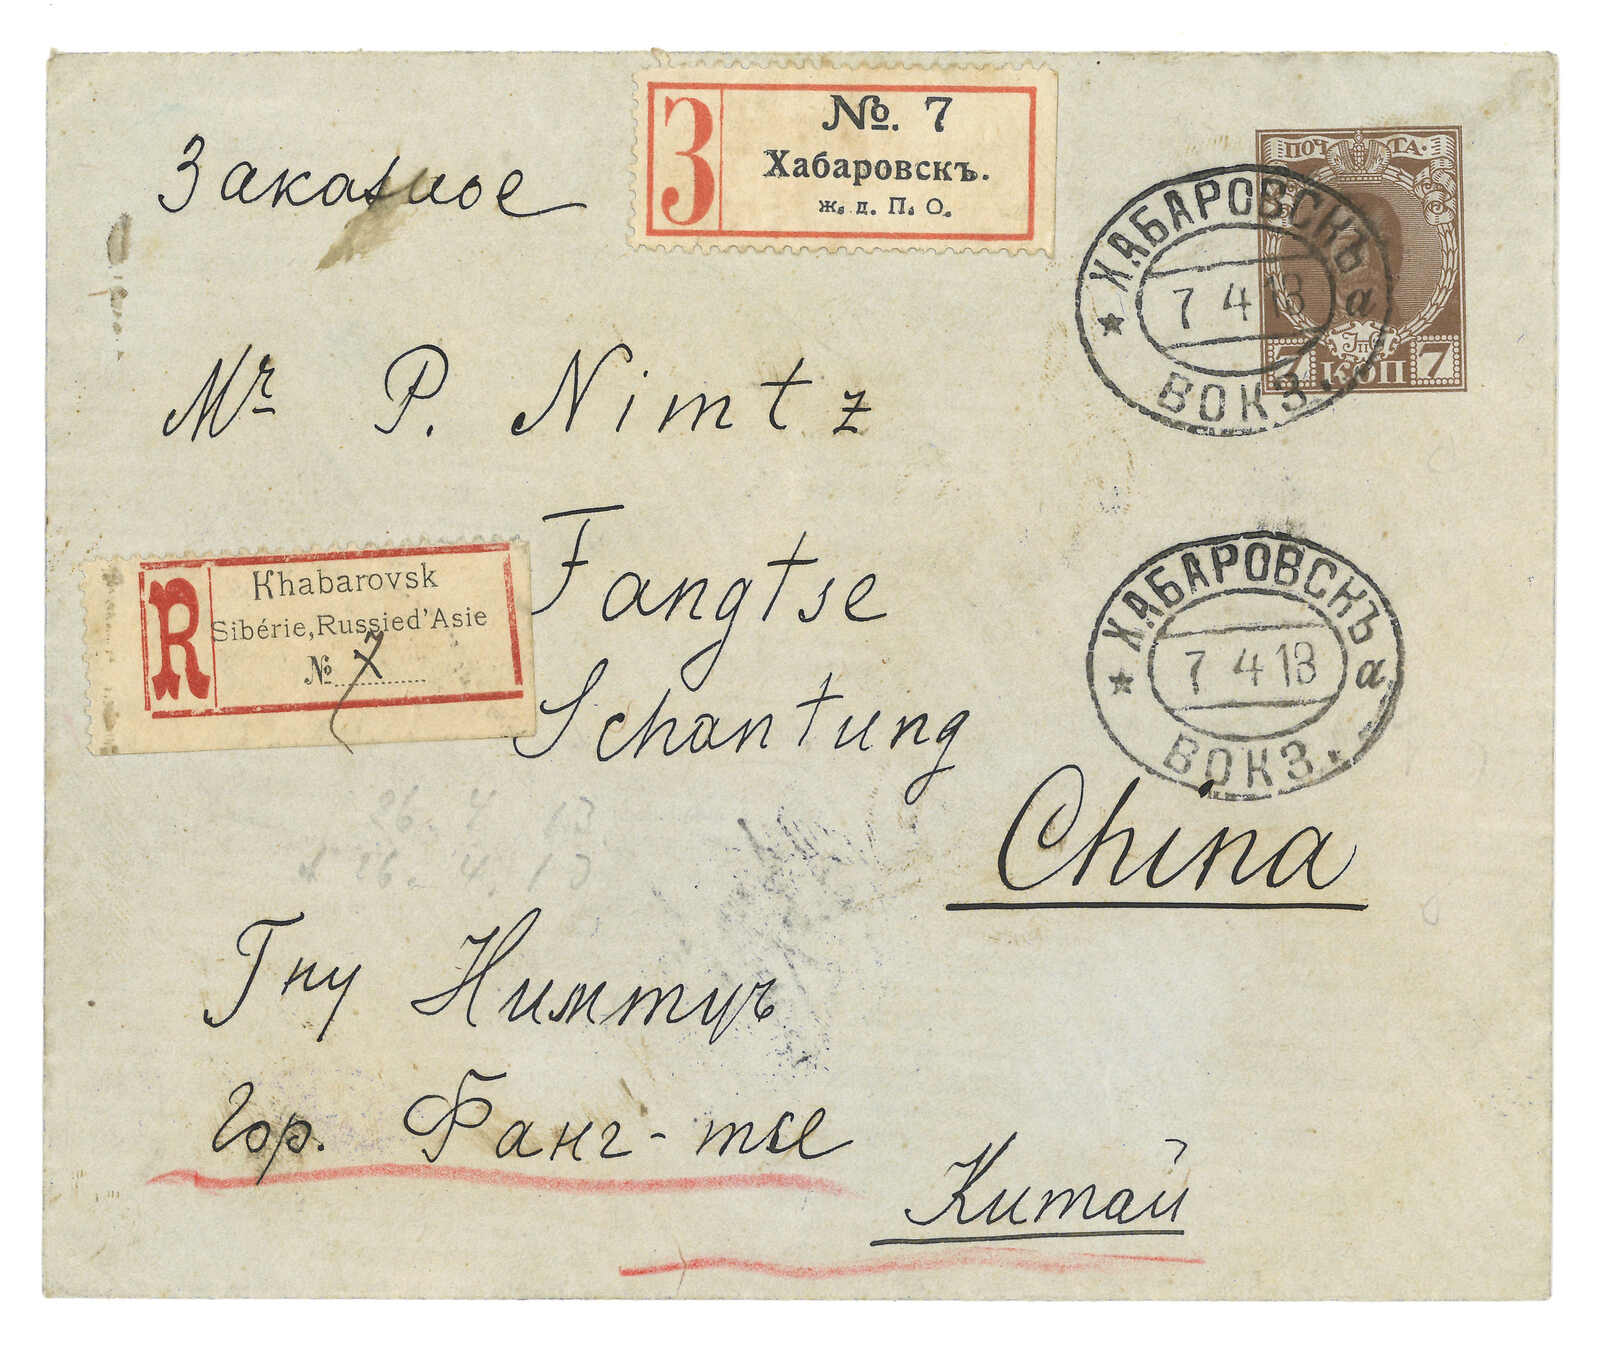 Заказное
З
№. 7
Хабаровскъ.
ж. д. П. О.
ПОЧТА.
7 КОП 7
ХАБАРОВСКЪ
7 4 13
а
ВОКЗ.
Mr P. Nimtz
Fangtse
Schantung
China
R
Khabarovsk
Sibérie, Russie d'Asie
№ 7
ХАБАРОВСКЪ
7 4 13
а
ВОКЗ.
26. 4. 13
26. 4. 13
Гну Нимтцъ
Гор. Фанг-тзе
Китай